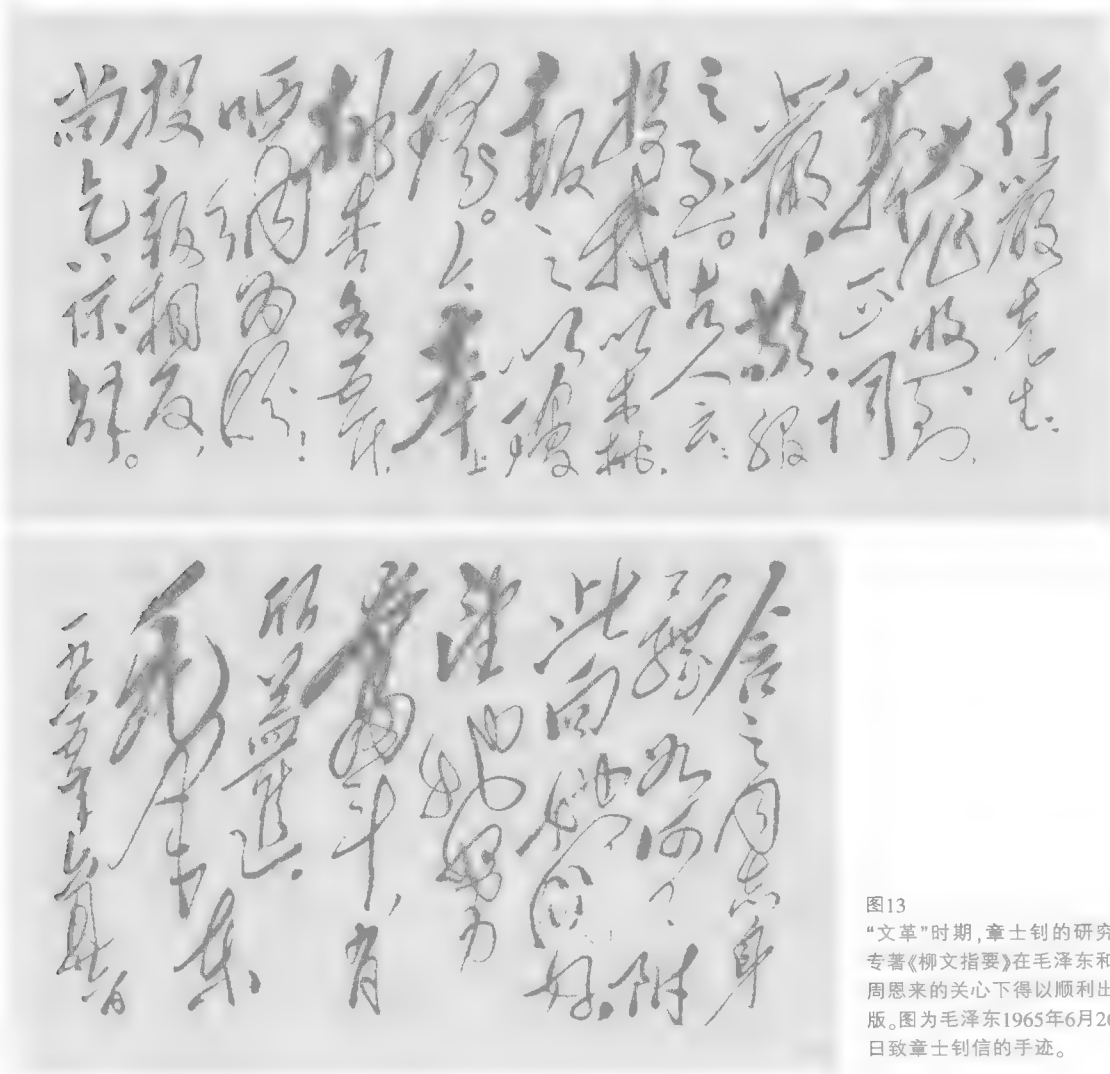 行嚴先生:
大作收到,
義正词
嚴,敬服
之至。古人云:
投我以木桃,
報之以瓊
瑶。今奉上
桃杏各五斤,
哂纳为盼!
投報相反,
尚乞諒解。
含之同志身
體如何?附
此向她问好,
望她努力
奮斗,有
所益進。
毛泽东
一九六五年六月廿六日
图13
“文革”时期,章士钊的研究
专著《柳文指要》在毛泽东和
周恩来的关心下得以顺利出
版。图为毛泽东1965年6月26
日致章士钊信的手迹。